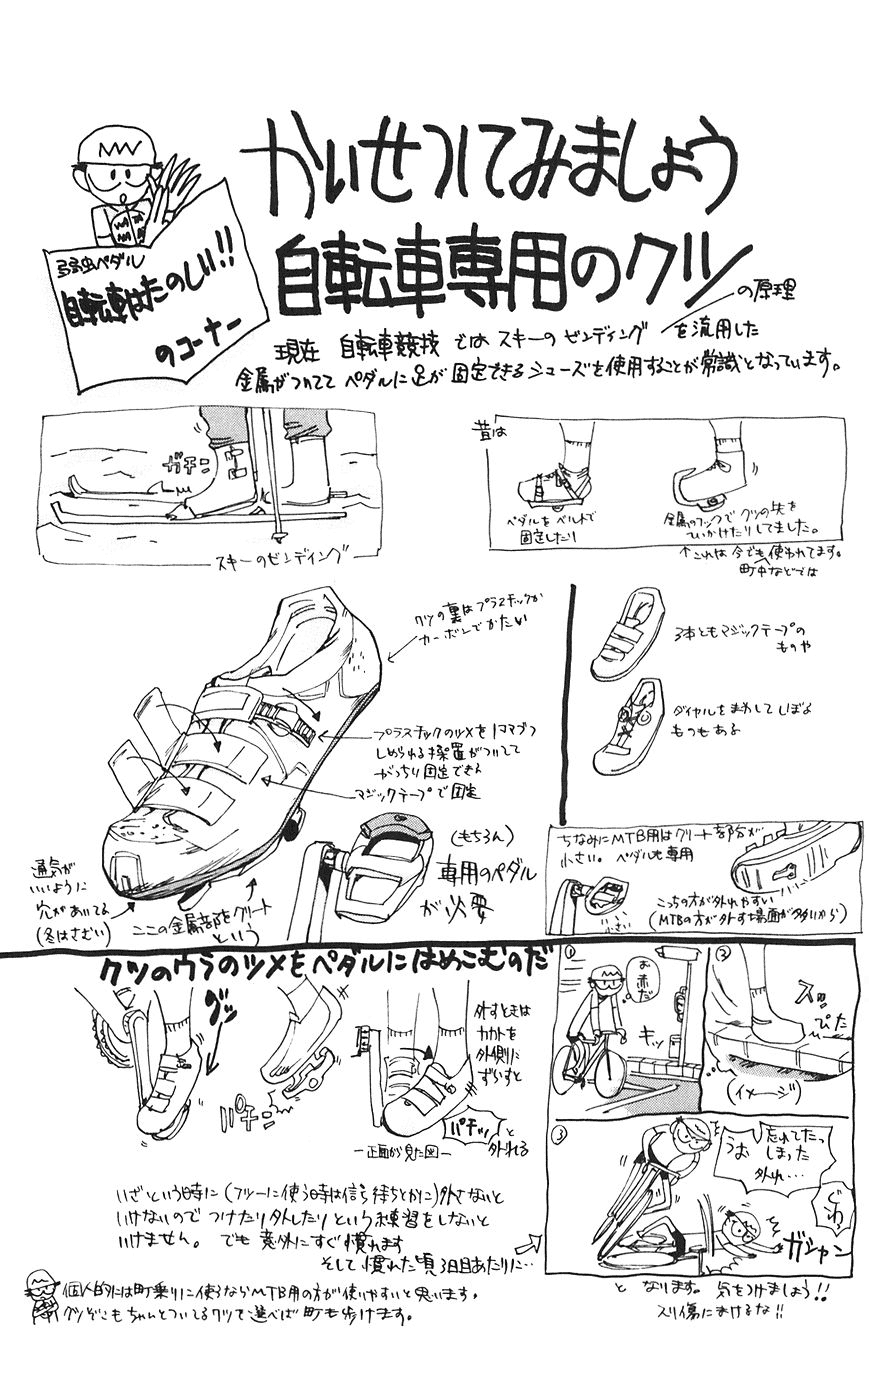 かいせつしてみましょう
自転車専用のクツ
の原理
弱虫ペダル
自転車はたのしい!!
のコーナー
現在 自転車競技 では スキーの ビンディング を流用した
金属がついてて ペダルに足が 固定できるシューズを使用することが常識となっています。
ガチン
スキーのビンディング
昔は
ペダルを ベルトで
固定したり
金属のフックで クツの先を
ひっかけたりしてました。
↑これは 今でも使われてます。
町中などでは
クツの裏はプラスチックか
カーボンでかたい
プラスチックのツメを1コマづつ
しめられる装置がついてて
がっちり固定できる
マジックテープで固定
3本ともマジックテープの
ものや
ダイヤルをまわしてしぼる
ものもある
(もちろん)
専用のペダル
が必要
通気が
いいように
穴があいてる
(冬はさむい)
ここの金属部をクリート
という
ちなみにMTB用はクリート部分が
小さい。 ペダルも専用
小さい
こっちの方が外れやすい
(MTBの方が外す場面が多いから)
クツのウラのツメをペダルにはめこむのだ
グッ
パチン
外すときは
カカトを
外側に
ずらすと
パチッ
と
外れる
ー正面から見た図ー
いざという時に(フツーに使う時は信号待ちとかに)外さないと
いけないので つけたり外したりという練習をしないと
いけません。 でも 意外にすぐ慣れます
そして 慣れた頃 3日目あたりに…
①
お
赤だ
キッ
②
スッ
ぴた
(イメージ)
③
うお
忘れてたっ
しまった
外れ…
ぐわっ
ガシャン
と なります。 気をつけましょう!!
スリ傷にまけるな!!
個人的には町乗りに使うならMTB用の方が使いやすいと思います。
クツぞこもちゃんとついてるクツを選べば 町も歩けます。